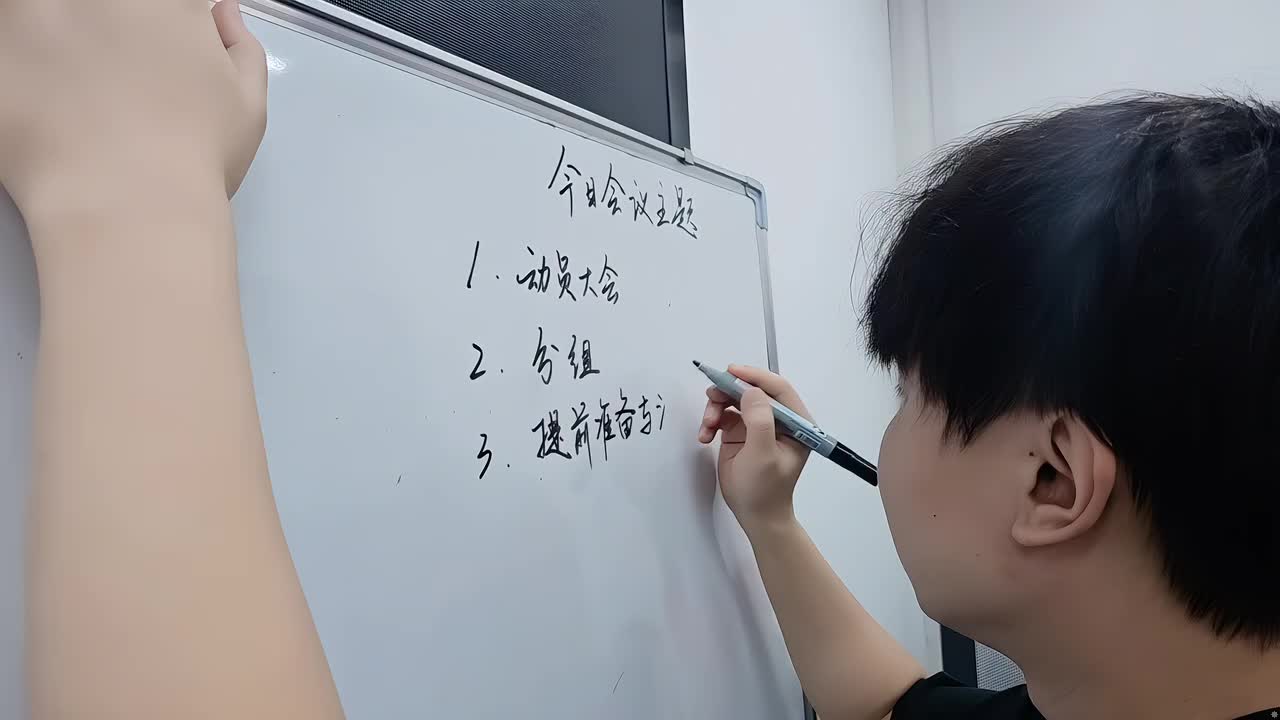 今日会议主题
1. 动员大会
2. 分组
3. 提前准备